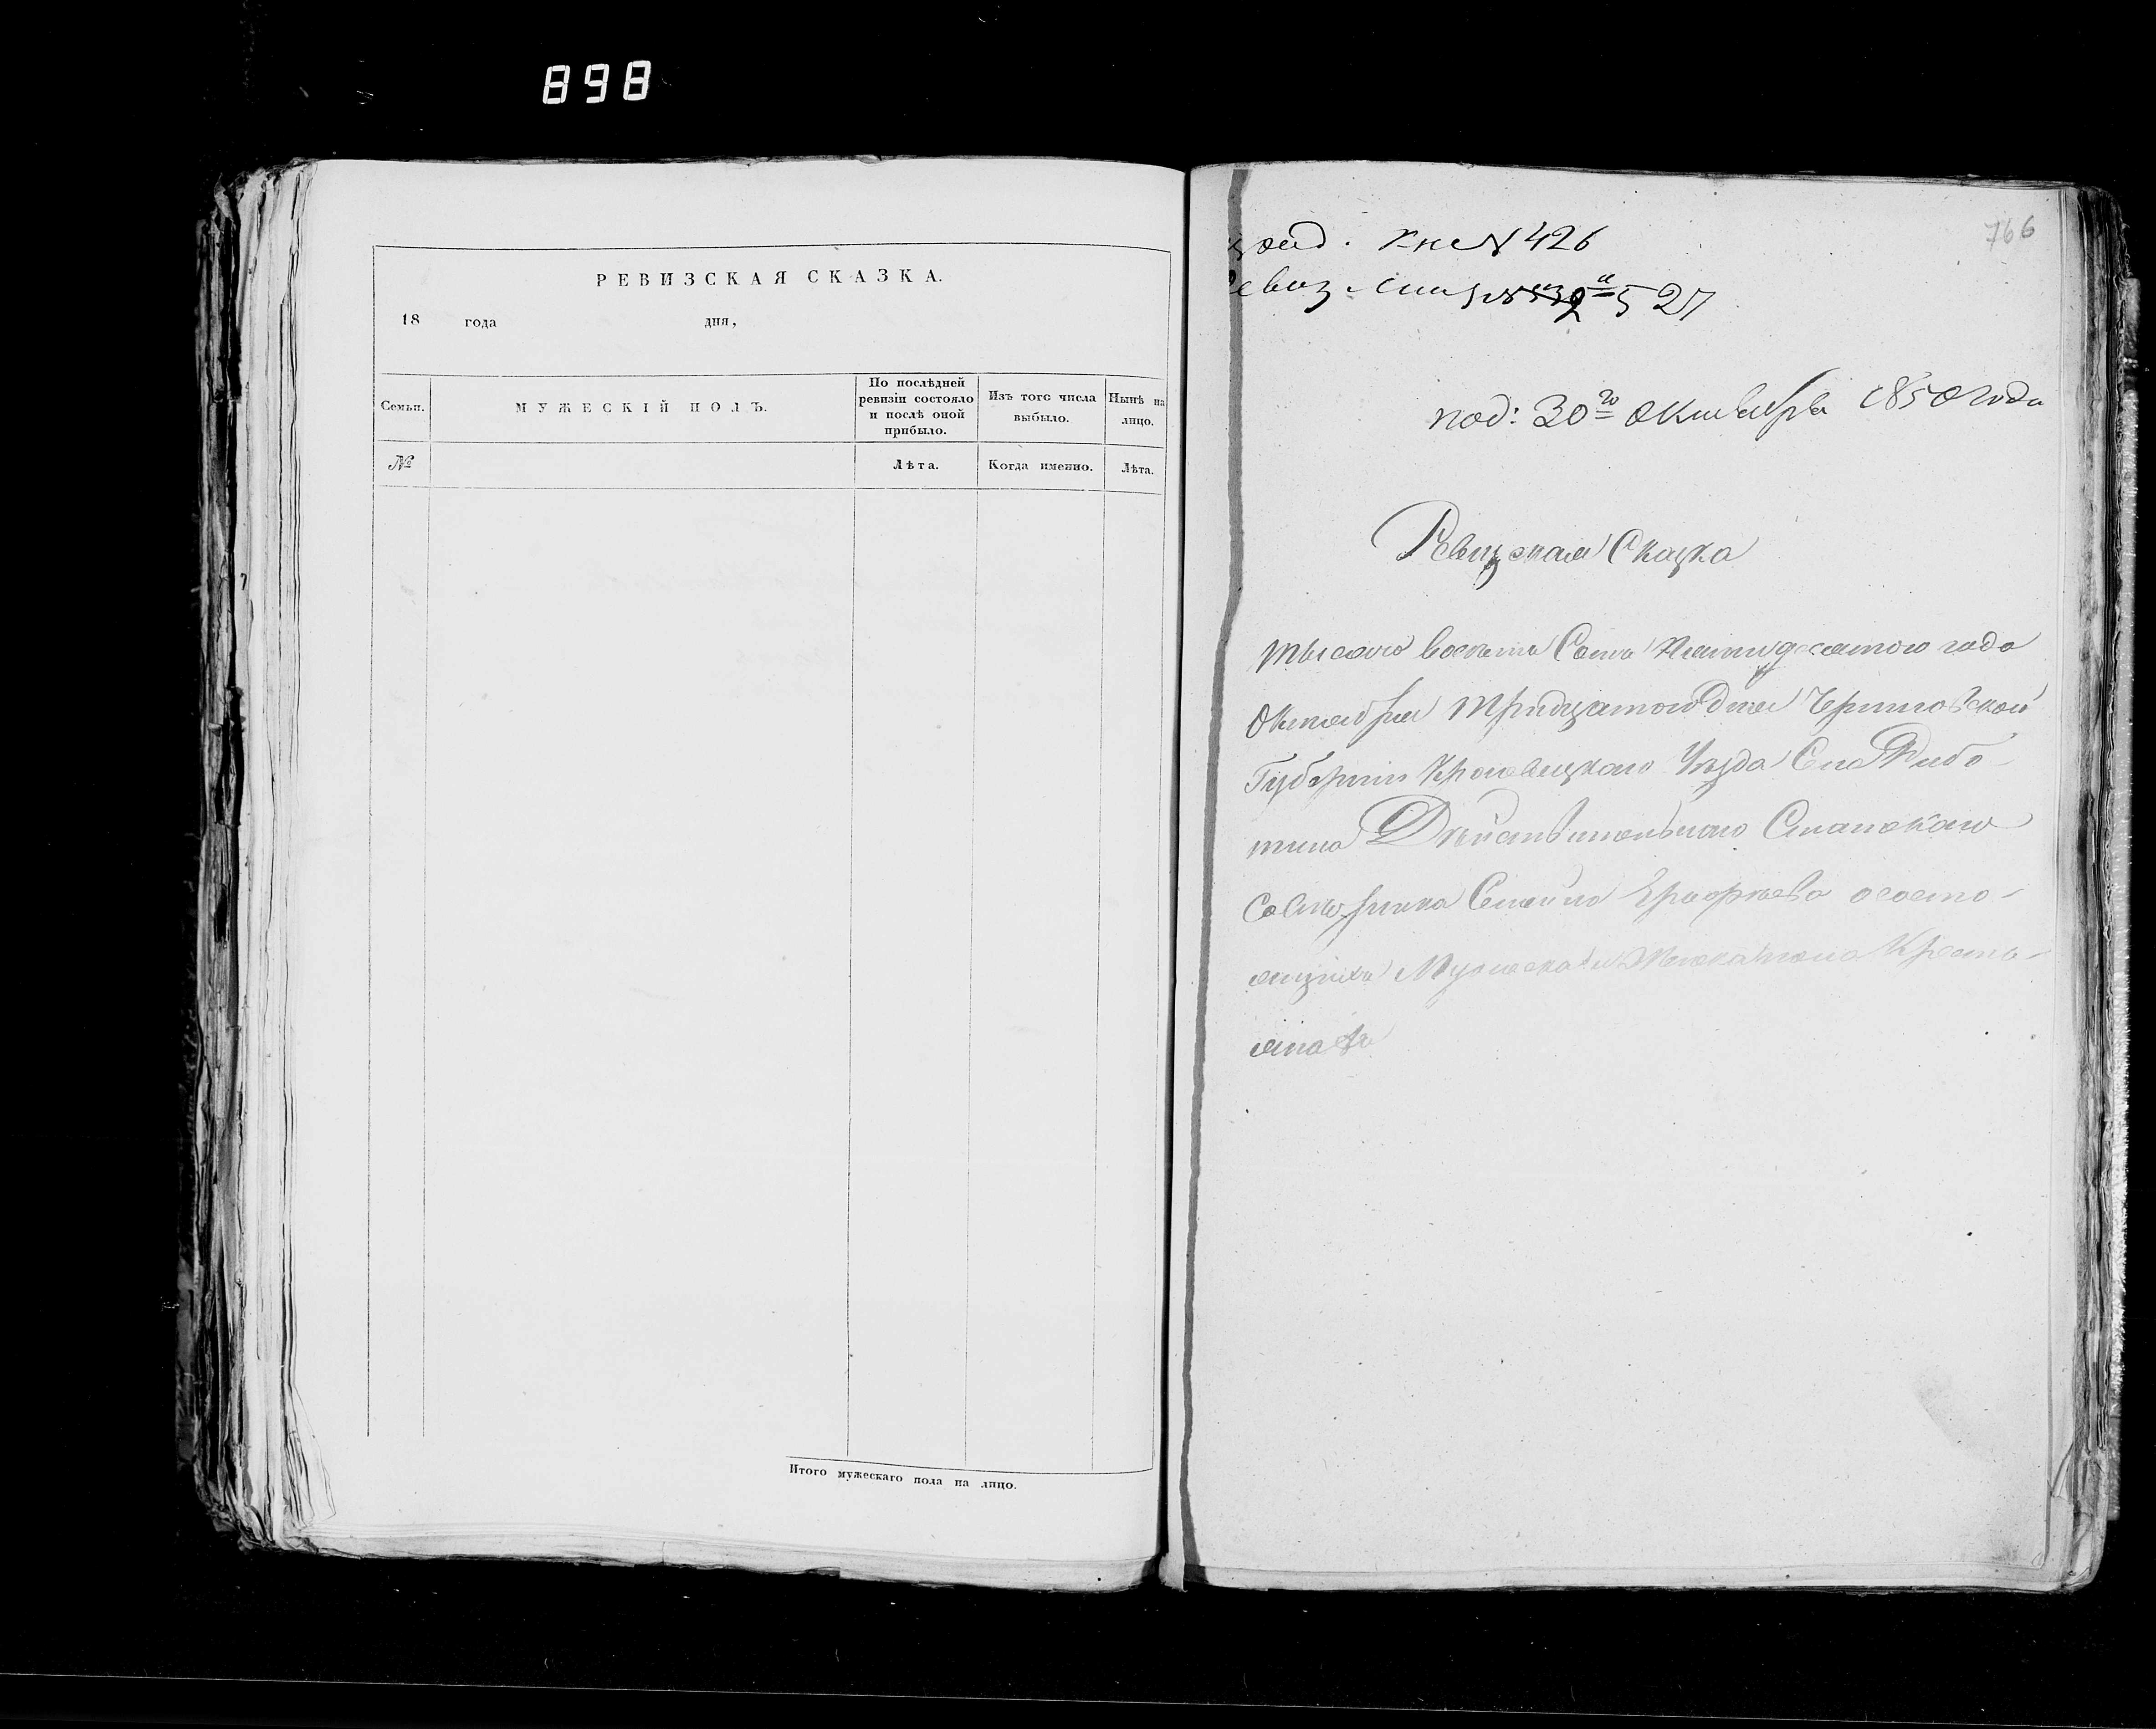 898
РЕВИЗСКАЯ СКАЗКА.
18 года дня,
Семьи.
МУЖЕСКІЙ ПОЛЪ.
По послѣдней
ревизіи состояло
и послѣ оной
прибыло.
Изъ того числа
выбыло.
Нынѣ на
лицо.
№
Лѣта.
Когда именно.
Лѣта.
Итого мужескаго пола на лицо.
766
№ 426
527
под: 30го Октября 1850 года
Ревизская Сказка
тысяча восемь Сотъ Пятидесятого года
Октября Тридцатого Дня Черниговской
Губерніи Кролевецкаго Уѣзда Села
Дѣйствительного Статскаго
Совѣтника ососто-
ящихъ Мужеска и Женска пола Кресть-
янахъ